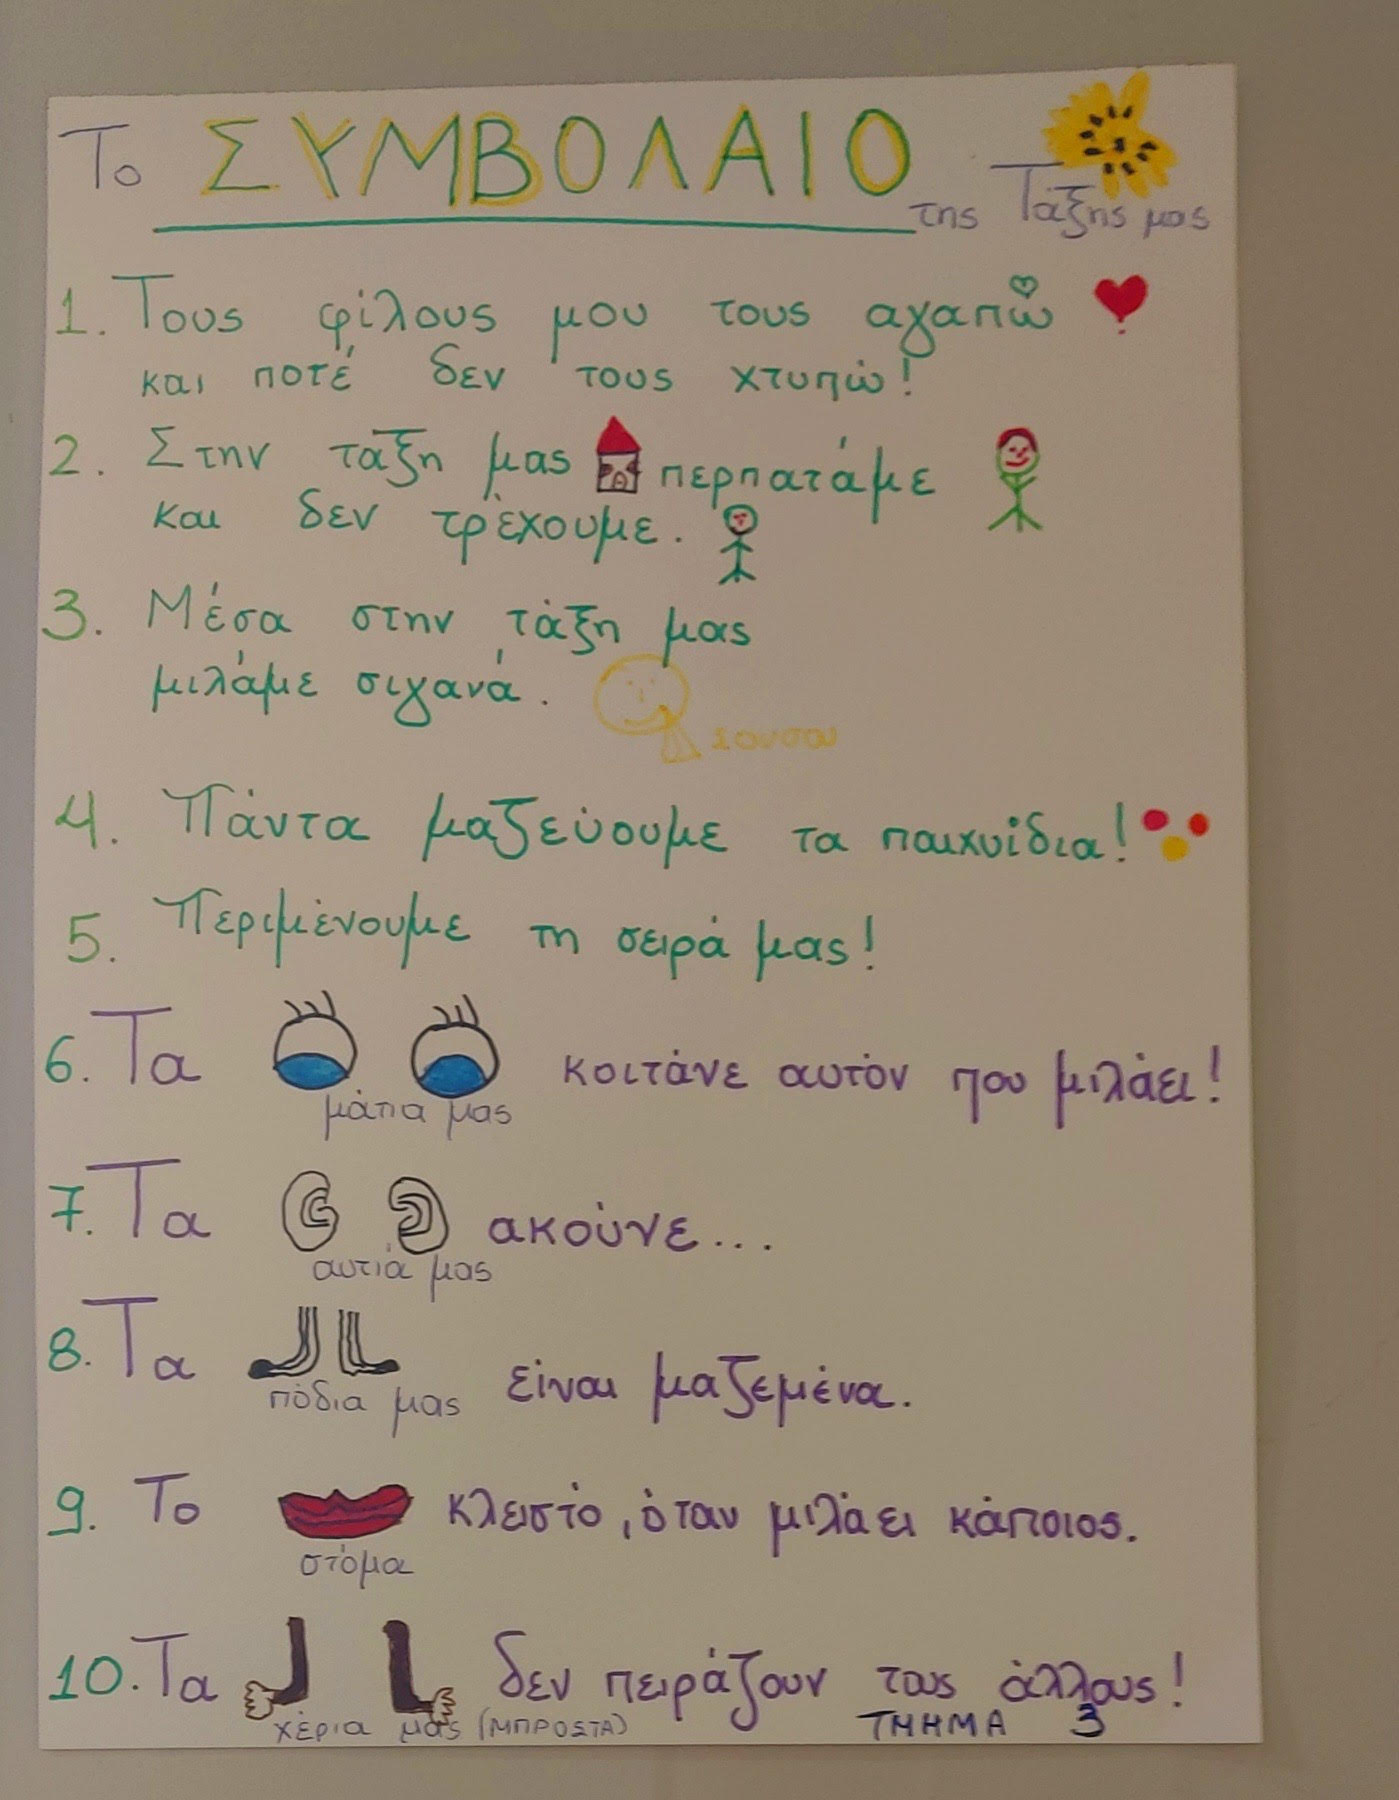 Το ΣΥΜΒΟΛΑΙΟ της Τάξης μας
1. Τους φίλους μου τους αγαπώ
και ποτέ δεν τους χτυπώ!
2. Στην τάξη μας περπατάμε
και δεν τρέχουμε.
3. Μέσα στην τάξη μας
μιλάμε σιγανά.
σουσου
4. Πάντα μαζεύουμε τα παιχνίδια!
5. Περιμένουμε τη σειρά μας!
6. Τα κοιτάνε αυτόν που μιλάει!
μάτια μας
7. Τα ακούνε...
αυτιά μας
8. Τα είναι μαζεμένα.
πόδια μας
9. Το κλειστό, όταν μιλάει κάποιος.
στόμα
10. Τα δεν πειράζουν τους άλλους!
χέρια μας (ΜΠΡΟΣΤΑ) ΤΜΗΜΑ 3